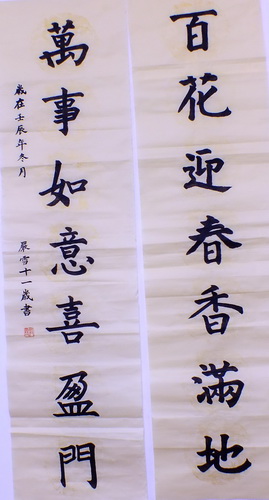 百花迎春香滿地
萬事如意喜盈門
歲在壬辰年冬月
晨雪十一歲書